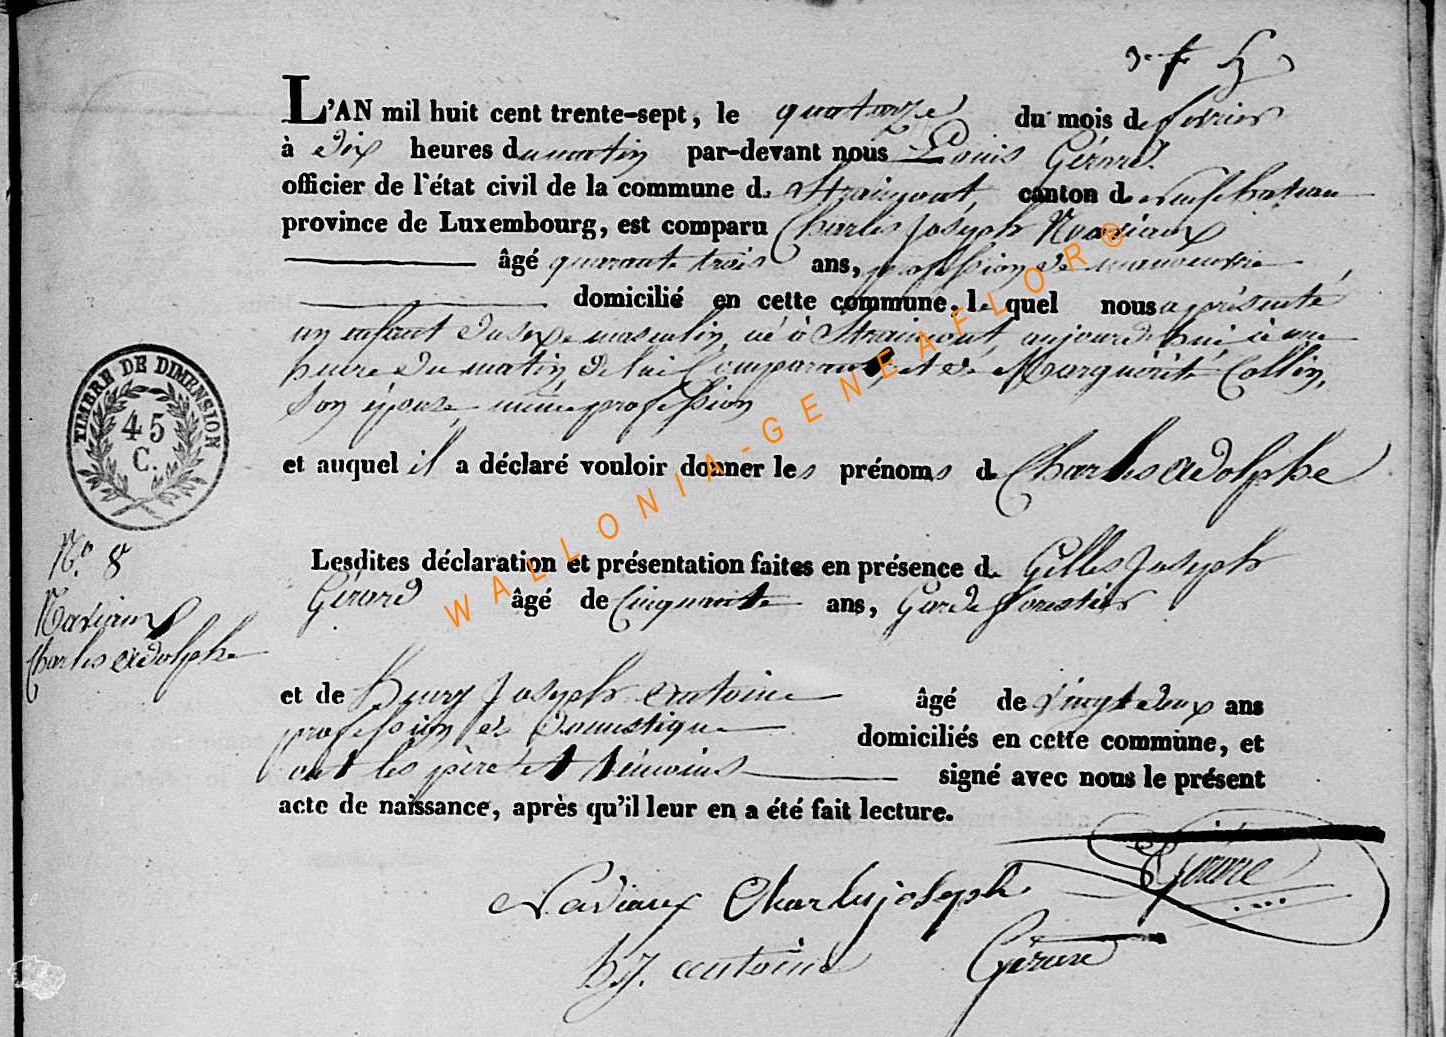 L'AN mil huit cent trente-sept, le quatorze du mois de fevrier
à dix heures du matin par-devant nous Louis Gérard
officier de l'état civil de la commune de Straimont, canton de neufchateau
province de Luxembourg, est comparu Charles Joseph Naviaux
âgé quarante trois ans, profession de manoeuvre
domicilié en cette commune, lequel nous a présenté
un enfant du sexe masculin, né à Straimont, aujourd'hui à une
heure du matin, de lui Comparant, et de Marguérite Collin,
Son épouse, même profession
et auquel il a déclaré vouloir donner les prénoms de Charles Adolphe
TIMBRE DE DIMENSION
45
C.
N.º 8
Naviaux
Charles Adolphe
Lesdites déclaration et présentation faites en présence de Gilles Joseph
Gérard âgé de Cinquante ans, Garde forestier
et de Henry Joseph Antoine âgé de vingt deux ans
profession de Domestique domiciliés en cette commune, et
ont les père et témoins signé avec nous le présent
acte de naissance, après qu'il leur en a été fait lecture.
Naviaux Charles joseph
h. j. antoine Gérard
WALLONIA-GENEAFLOR®